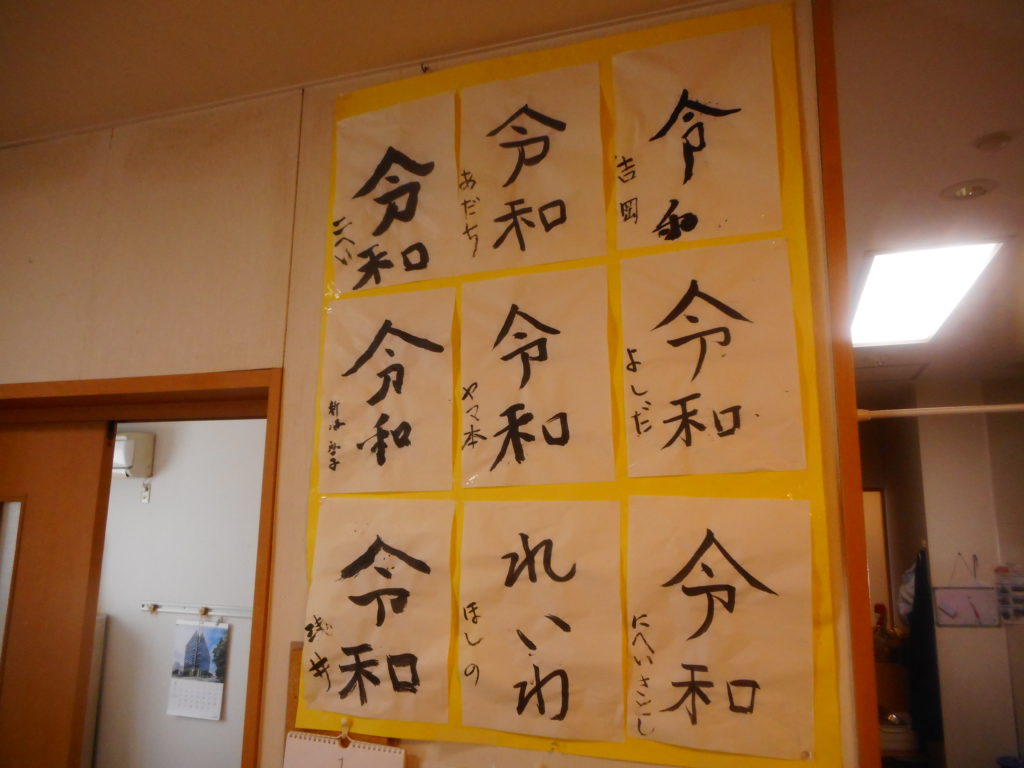 令和
吉岡
令和
あだち
令和
二へい
令和
よしだ
令和
ヤマ本
令和
令和
にへいさとし
れいわ
ほしの
令和
浅井